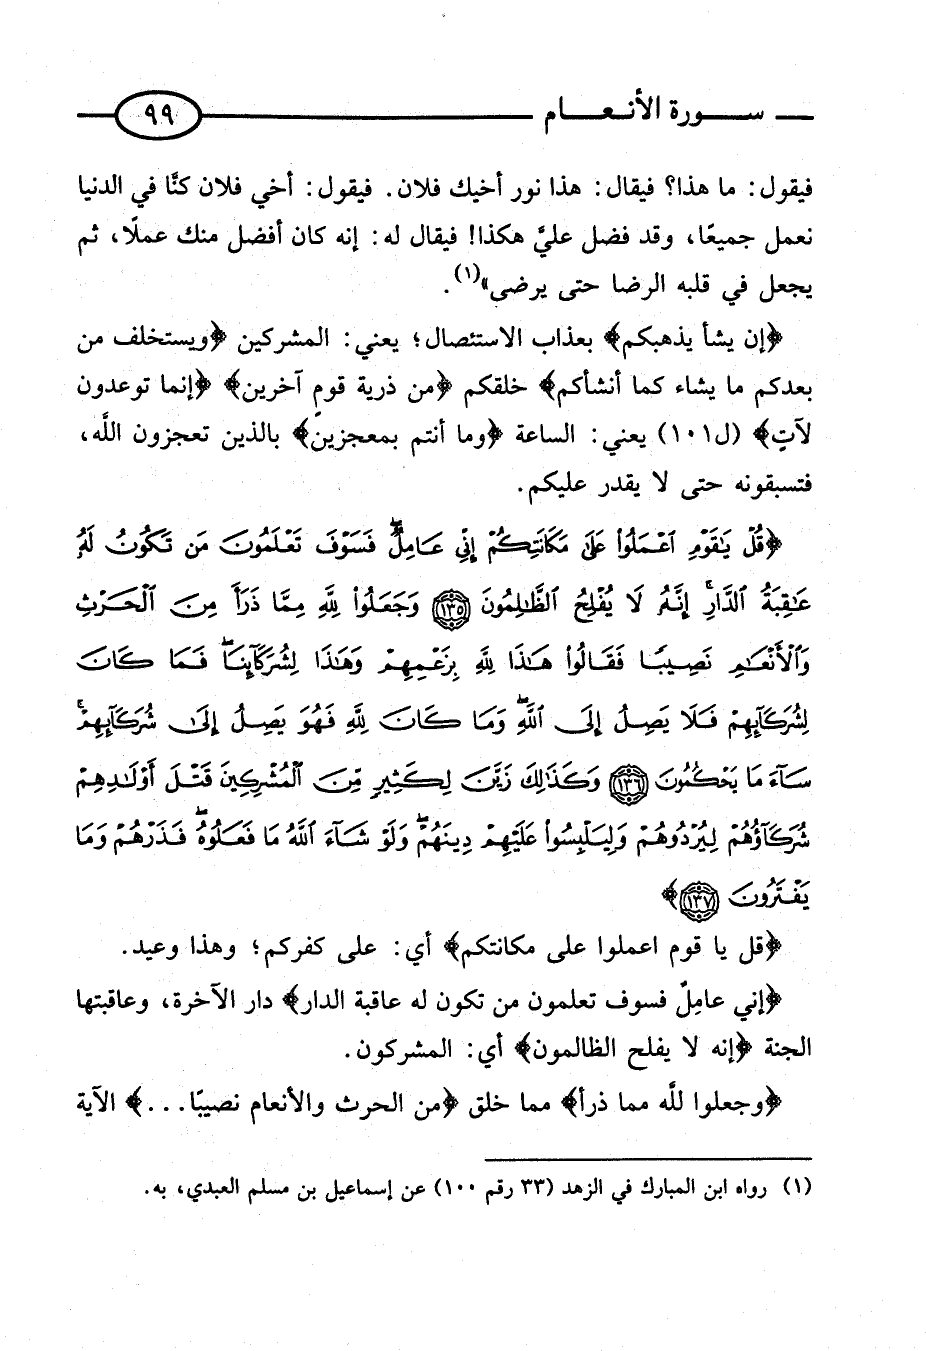 سورة الأنعام ٩٩
فيقول: ما هذا؟ فيقال: هذا نور أخيك فلان. فيقول: أخي فلان كنَّا في الدنيا
نعمل جميعًا، وقد فضل عليَّ هكذا! فيقال له: إنه كان أفضل منك عملًا، ثم
يجعل في قلبه الرضا حتى يرضى»(١).
﴿إن يشأ يذهبكم﴾ بعذاب الاستئصال؛ يعني: المشركين ﴿ويستخلف من
بعدكم ما يشاء كما أنشأكم﴾ خلقكم ﴿من ذرية قوم آخرين﴾ ﴿إنما توعدون
لآتٍ﴾ (ل١٠١) يعني: الساعة ﴿وما أنتم بمعجزين﴾ بالذين تعجزون اللَّه،
فتسبقونه حتى لا يقدر عليكم.
﴿قُلْ يَٰقَوْمِ ٱعْمَلُوا۟ عَلَىٰ مَكَانَتِكُمْ إِنِّى عَامِلٌۖ فَسَوْفَ تَعْلَمُونَ مَن تَكُونُ لَهُۥ
عَٰقِبَةُ ٱلدَّارِۚ إِنَّهُۥ لَا يُفْلِحُ ٱلظَّٰلِمُونَ ١٣٥ وَجَعَلُوا۟ لِلَّهِ مِمَّا ذَرَأَ مِنَ ٱلْحَرْثِ
وَٱلْأَنْعَٰمِ نَصِيبًا فَقَالُوا۟ هَٰذَا لِلَّهِ بِزَعْمِهِمْ وَهَٰذَا لِشُرَكَآئِنَاۖ فَمَا كَانَ
لِشُرَكَآئِهِمْ فَلَا يَصِلُ إِلَى ٱللَّهِۖ وَمَا كَانَ لِلَّهِ فَهُوَ يَصِلُ إِلَىٰ شُرَكَآئِهِمْۗ
سَآءَ مَا يَحْكُمُونَ ١٣٦ وَكَذَٰلِكَ زَيَّنَ لِكَثِيرٍ مِّنَ ٱلْمُشْرِكِينَ قَتْلَ أَوْلَٰدِهِمْ
شُرَكَآؤُهُمْ لِيُرْدُوهُمْ وَلِيَلْبِسُوا۟ عَلَيْهِمْ دِينَهُمْۖ وَلَوْ شَآءَ ٱللَّهُ مَا فَعَلُوهُۖ فَذَرْهُمْ وَمَا
يَفْتَرُونَ ١٣٧﴾
﴿قل يا قوم اعملوا على مكانتكم﴾ أي: على كفركم؛ وهذا وعيد.
﴿إني عاملٌ فسوف تعلمون من تكون له عاقبة الدار﴾ دار الآخرة، وعاقبتها
الجنة ﴿إنه لا يفلح الظالمون﴾ أي: المشركون.
﴿وجعلوا للَّه مما ذرأ﴾ مما خلق ﴿من الحرث والأنعام نصيبًا...﴾ الآية
(١) رواه ابن المبارك في الزهد (٣٣ رقم ١٠٠) عن إسماعيل بن مسلم العبدي، به.